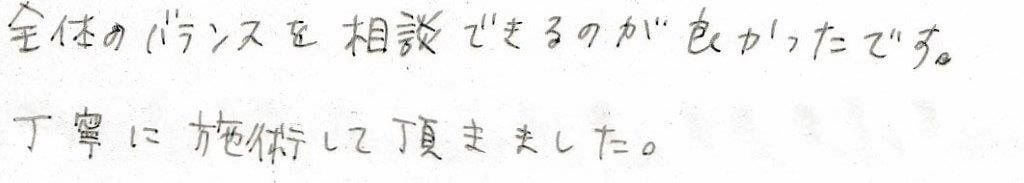 全体のバランスを相談できるのが良かったです。
丁寧に施術して頂きました。